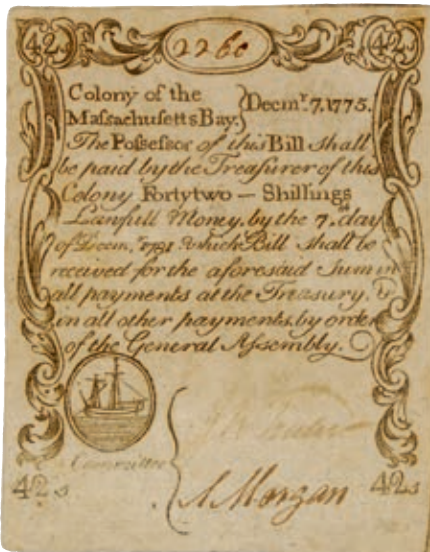 42s 2260 42s
Colony of the
Massachusetts Bay. } Decmr. 7. 1775.
The Possessor of this Bill shall
be paid by the Treasurer of this
Colony Fortytwo – Shillings
Lawfull Money, by the 7th day
of Decem.r 1781 which Bill shall be
received for the aforesaid Sum in
all payments at the Treasury, &
in all other payments, by order
of the General Assembly.
Committee
Morgan
42s 42s